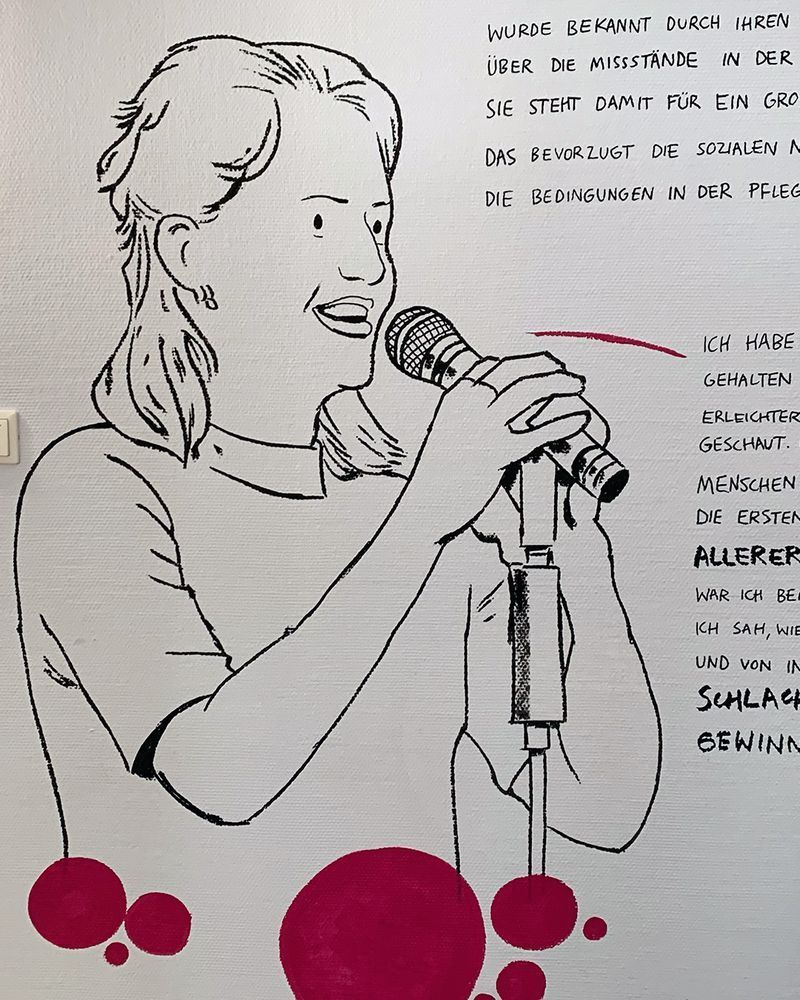 WURDE BEKANNT DURCH IHREN
ÜBER DIE MISSSTÄNDE IN DER
SIE STEHT DAMIT FÜR EIN GRO
DAS BEVORZUGT DIE SOZIALEN
DIE BEDINGUNGEN IN DER PFLEG
ICH HABE
GEHALTEN
ERLEICHTER
GESCHAUT.
MENSCHEN
DIE ERSTEN
ALLERER
WAR ICH BEI
ICH SAH, WIE
UND VON IN
SCHLACH
GEWINN